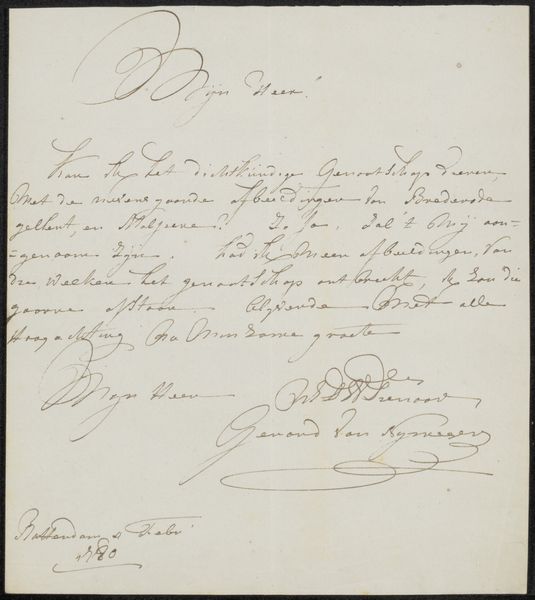 Mijn Heer!
Kan Ik het dichtkundige Genootschap dienen,
Met de nevensgaande afbeeldingen van Brederode
gellent, en Malpere? Zo Ja, zal 't Mij aan-
=genaam zijn. had ik meer afbeeldingen, van
die welken het genootschap ontbreekt, ik zou die
gaarne afstaan. blijvende Met alle
Hoogachting Na Minzame groete
Mijn Heer
UEDWDienaar
Gerard Van Nijmegen
Rotterdam 4 Febr
1780